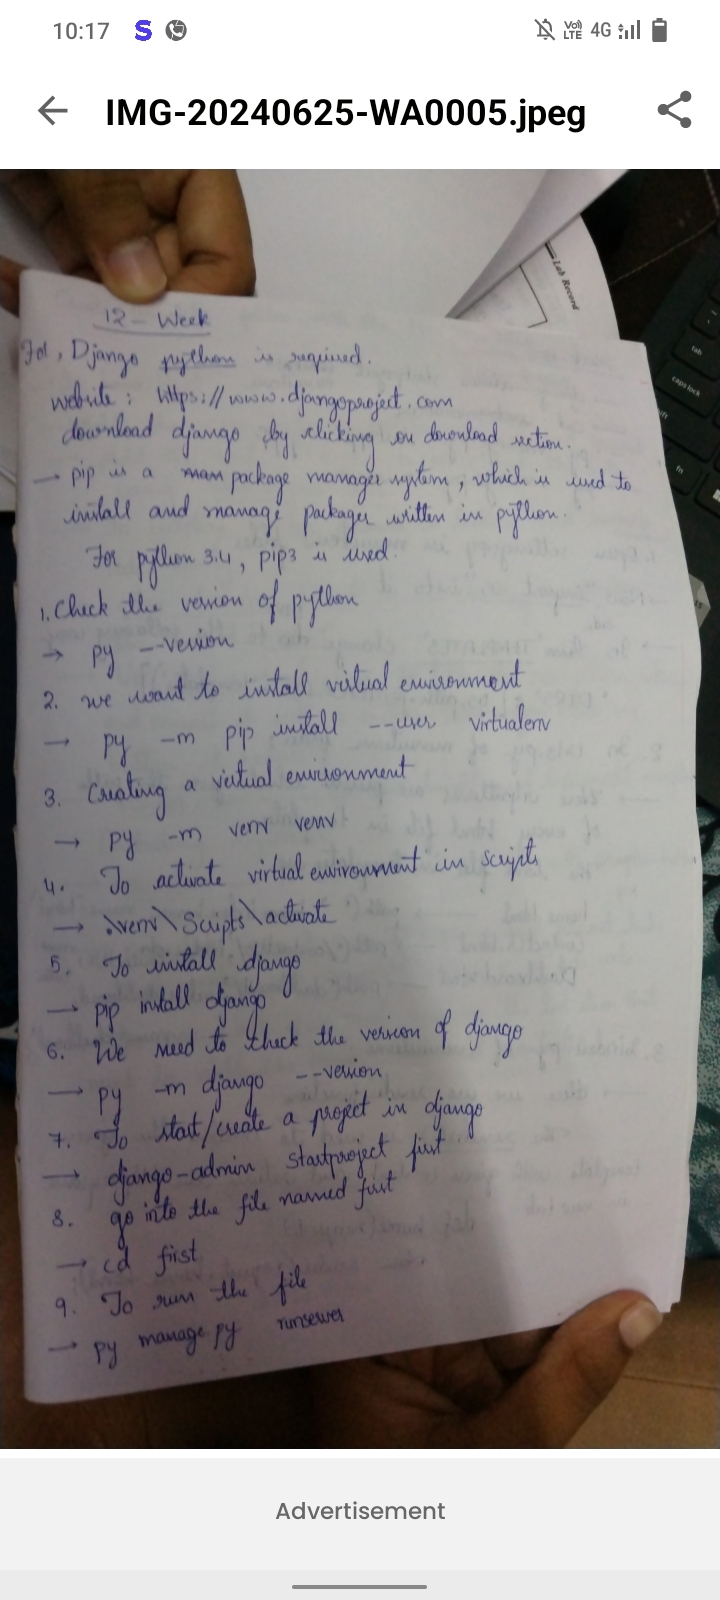 10:17 S VoD LTE 4G
IMG-20240625-WA0005.jpeg
Lab Record
tab
caps lock
fn
12 - Week
For, Django python is required.
website : https://www.djangoproject.com
download django by clicking on download section.
→ pip is a package manager system, which is used to
install and manage packages written in python.
For python 3.4, pip3 is used.
1. Check the version of python
→ py --version
2. we want to install virtual environment
→ py -m pip install --user virtualenv
3. Creating a virtual environment
→ py -m venv venv
4. To activate virtual environment in scripts
→ .\venv\Scripts\activate
5. To install django
→ pip install django
6. We need to check the version of django
→ py -m django --version
7. To start/create a project in django
→ django-admin startproject first
8. go into the file named first
→ cd first
9. To run the file
→ py manage py runserver
Advertisement